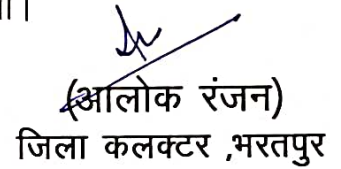 (आलोक रंजन)
जिला कलक्टर ,भरतपुर